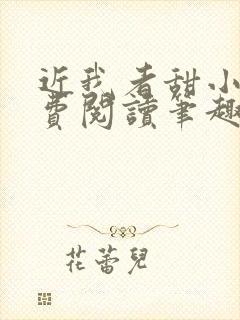 近我者甜小
費閱讀筆趣
花蕾兒